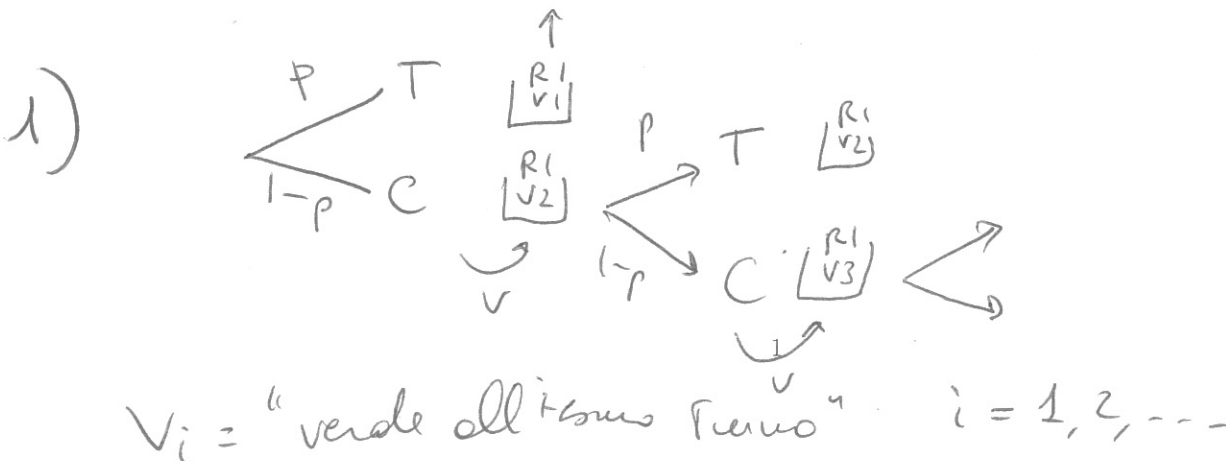 1)
P T R1 V1
1-p C R1 V2 P T R1 V2
V 1-p C R1 V3
1
V
Vi = "verde all'i-esimo Turno" i = 1, 2, ---